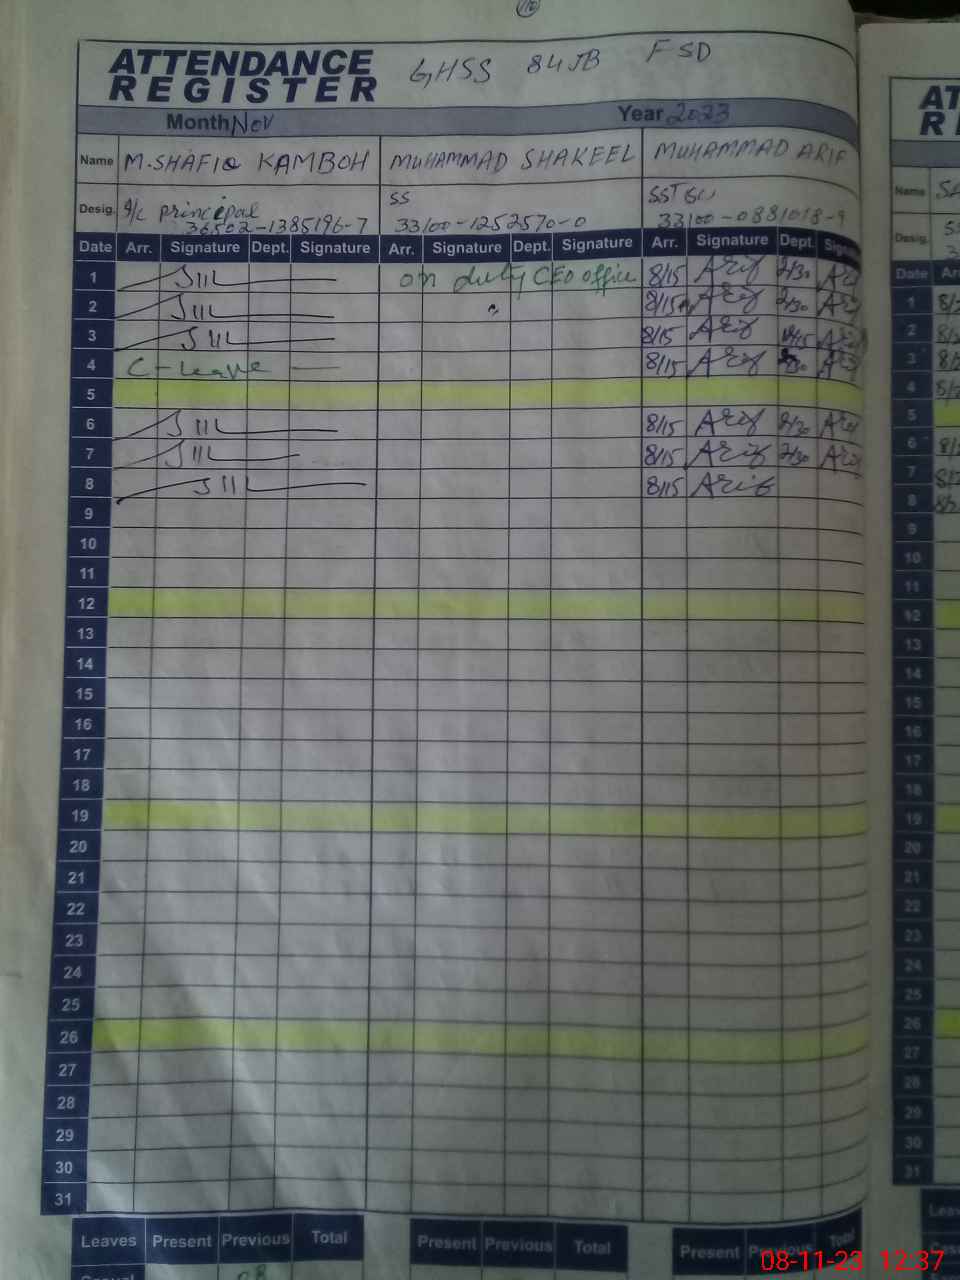 ATTENDANCE
REGISTER
GHSS 84 JB FSD
Month Nov Year 2023
Name M.SHAFIQ KAMBOH MUHAMMAD SHAKEEL MUHAMMAD ARIF
Desig. I/C principal 36502-1385196-7 SS 33100-1252570-0 SST 33100-0881018-9
Date Arr. Signature Dept. Signature Arr. Signature Dept. Signature Arr. Signature Dept.
1 on duty CEO office 8/15 Arif 2/30
2 8/15 Arif 2/30
3 8/15 Arif
4 C-leave 8/15 Arif
5
6 8/15 Arif 2/30
7 8/15 Arif 2/30
8 8/15 Arif
9
10
11
12
13
14
15
16
17
18
19
20
21
22
23
24
25
26
27
28
29
30
31
Leaves Present Previous Total Present Previous Total Present Previous Total
Name
Desig.
Date
1
2
3
4
5
6
7
8
9
10
11
12
13
14
15
16
17
18
19
20
21
22
23
24
25
26
27
28
29
30
31
08-11-23 12:37